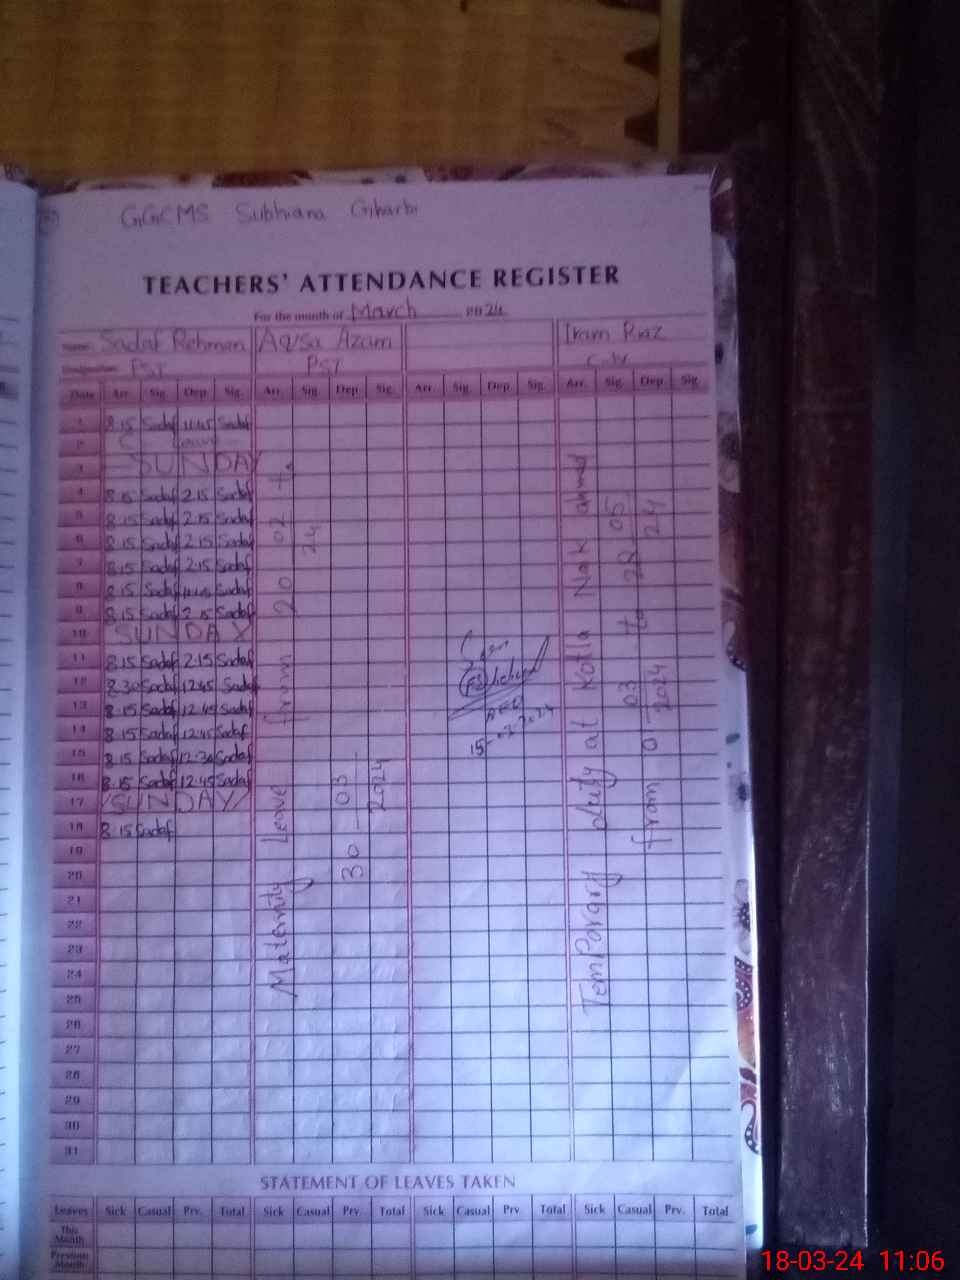 GGCMS Subhiana Gharbi
TEACHERS' ATTENDANCE REGISTER
For the month of March 2024
Name Sadaf Rehman Aqsa Azam Iram Riaz
Designation PST PST
Date Arr. Sig. Dep. Sig. Arr. Sig. Dep. Sig. Arr. Sig. Dep. Sig. Arr. Sig. Dep. Sig.
1 8.15 Sadaf 11.45 Sadaf
2 C leave
3 SUNDAY
4 8.15 Sadaf 2.15 Sadaf
5 8.15 Sadaf 2.15 Sadaf
6 8.15 Sadaf 2.15 Sadaf
7 8.15 Sadaf 2.15 Sadaf
8 8.15 Sadaf Sadaf
9 8.15 Sadaf 2.15 Sadaf
10 SUNDAY
11 8.15 Sadaf 2.15 Sadaf
12 8.30 Sadaf 12.45 Sadaf
13 8.15 Sadaf 12.45 Sadaf
14 8.15 Sadaf 12.45 Sadaf
15 8.15 Sadaf 12.30 Sadaf
16 8.15 Sadaf 12.45 Sadaf
17 SUNDAY
18 8.15 Sadaf
19
20
21
22
23
24
25
26
27
28
29
30
31
Maternity Leave from 20 02 to
24
30 03
2024
15
Temporary duty at Kotla Nak ahmad
03 to 28 05
from 2024 24
STATEMENT OF LEAVES TAKEN
Leaves Sick Casual Prv. Total Sick Casual Prv. Total Sick Casual Prv. Total Sick Casual Prv. Total
This Month
Previous Month
18-03-24 11:06